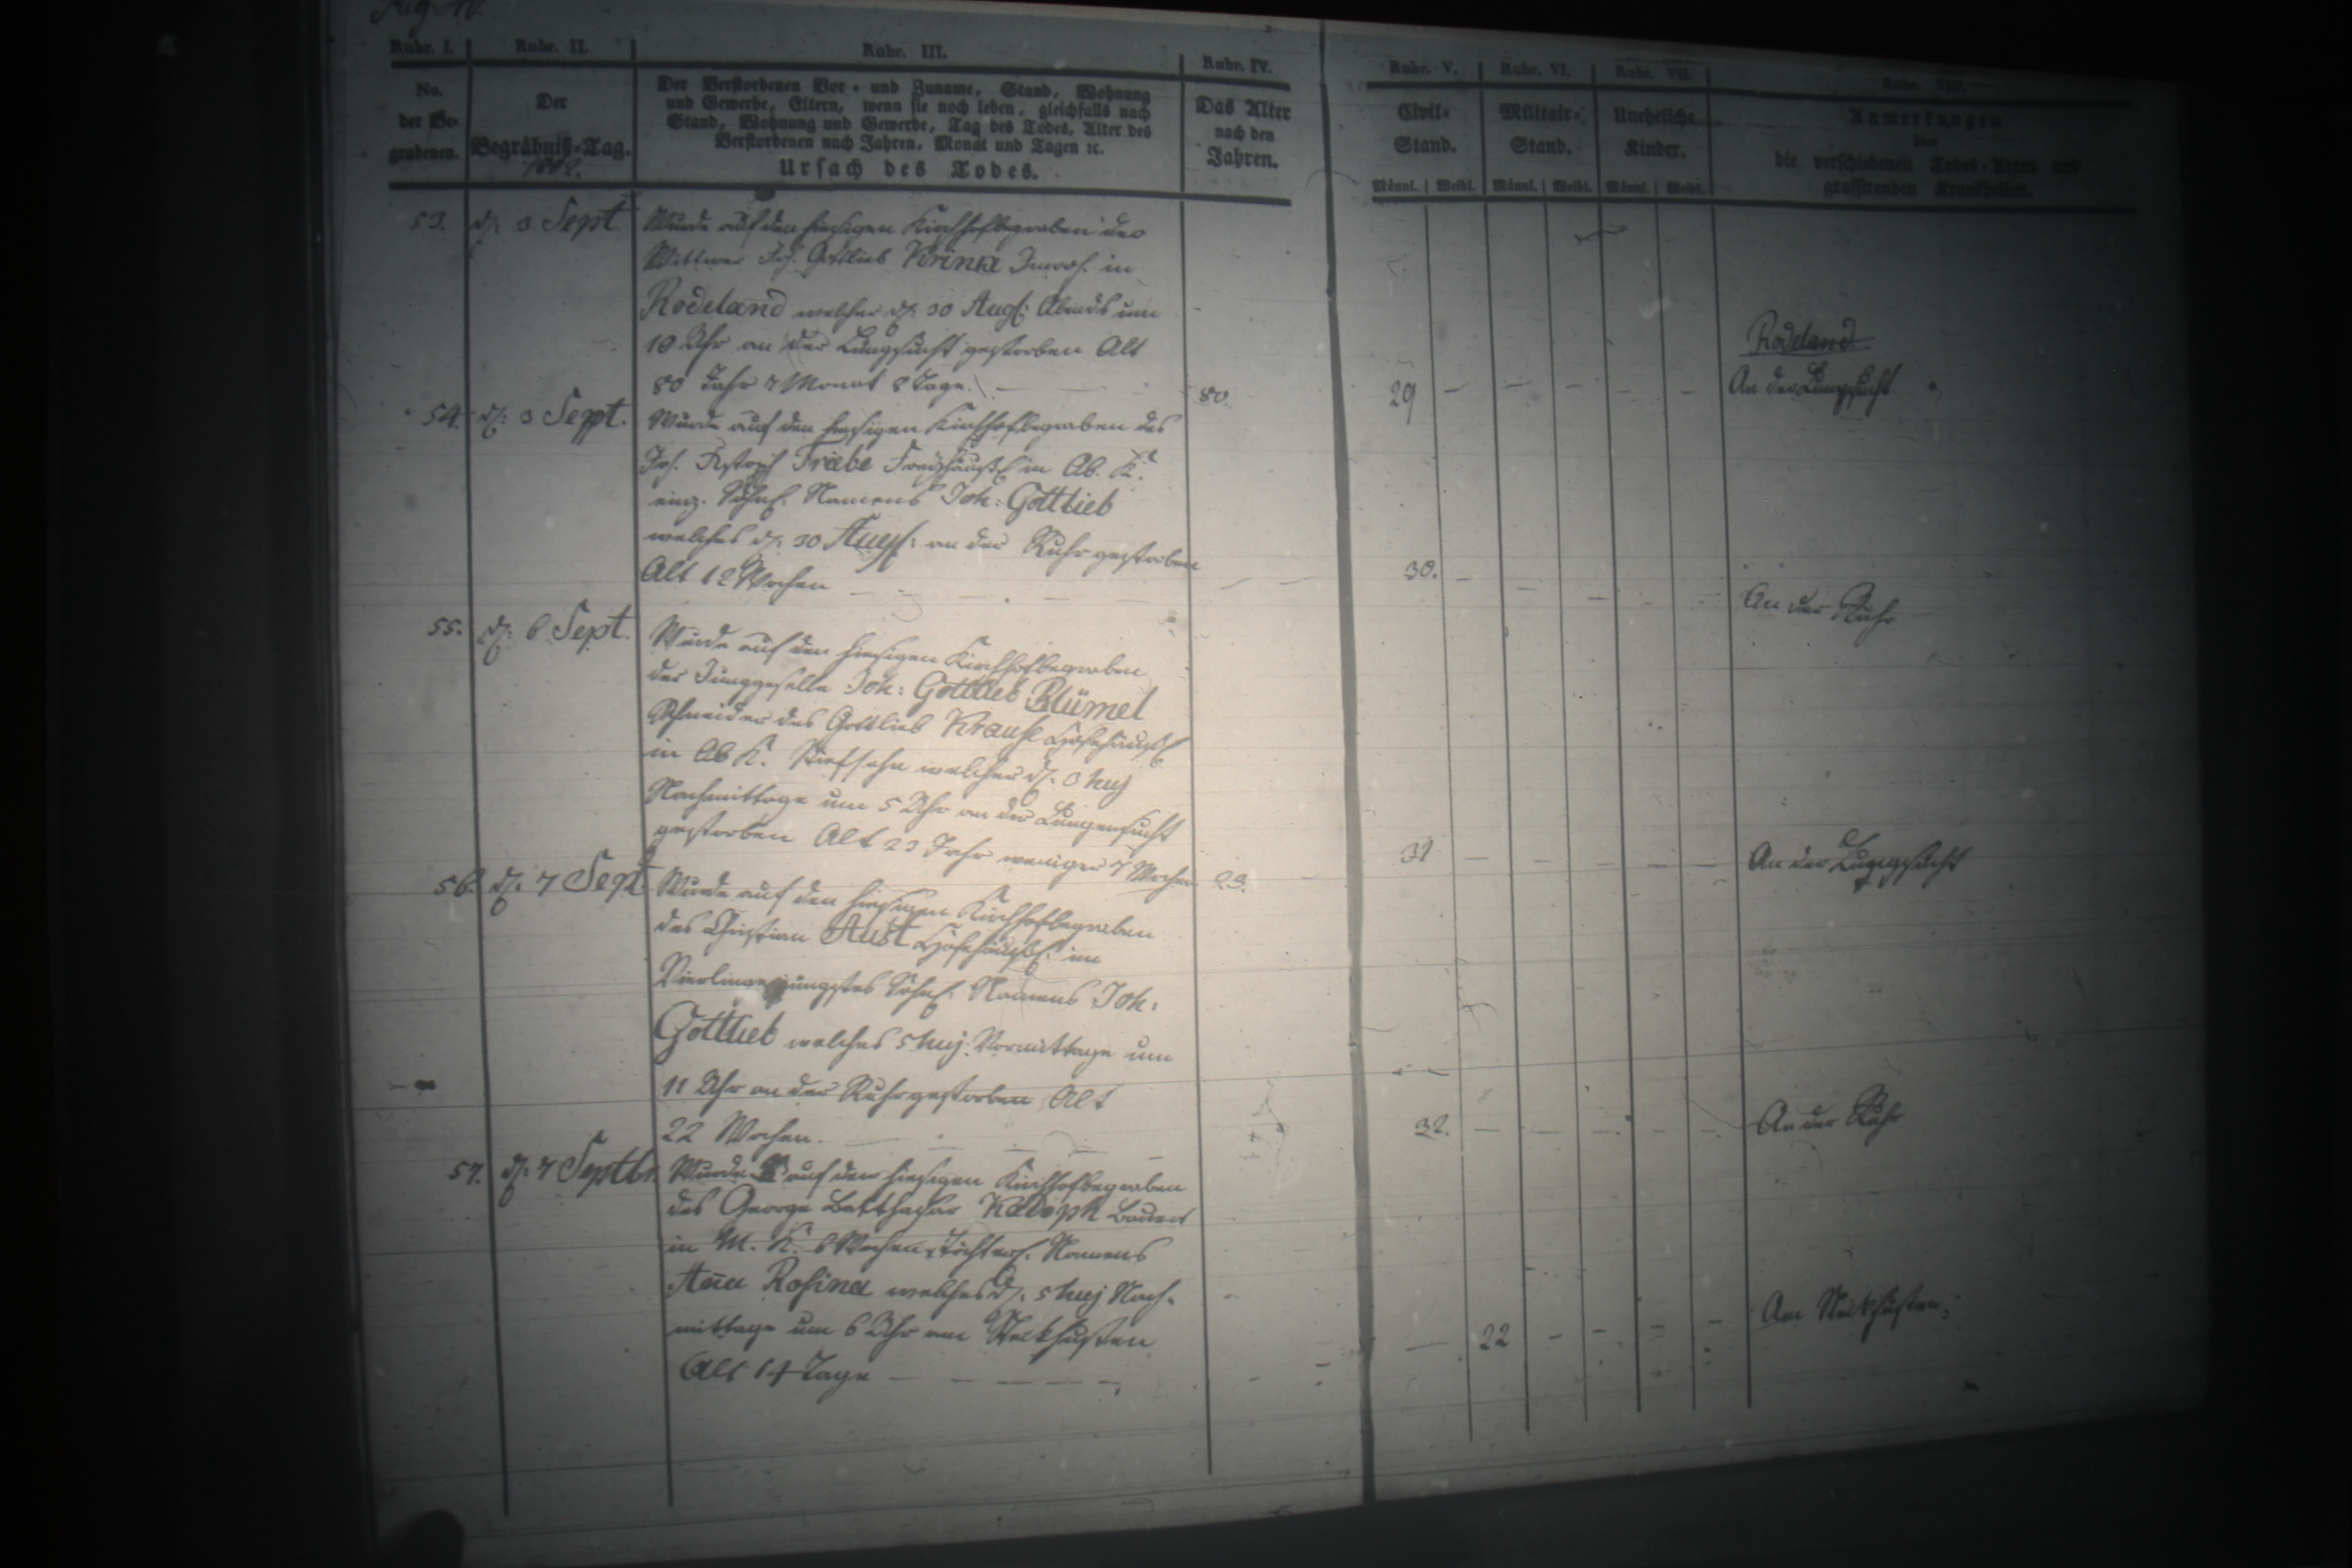 Rubr. I. Rubr. II. Rubr. III. Rubr. IV. Rubr. V. Rubr. VI. Rubr. VII. Rubr. VIII.
No. der Be- grabenen.
Der Begräbniß-Tag.
Der Verstorbenen Vor- und Zuname, Stand, Wohnung
und Gewerbe, Eltern, wenn sie noch leben, gleichfalls nach
Stand, Wohnung und Gewerbe, Tag des Todes, Alter des
Verstorbenen nach Jahren, Monat und Tagen ꝛc.
Ursach des Todes.
Das Alter
nach den
Jahren.
Civil-
Stand.
Militair-
Stand.
Uneheliche
Kinder.
Männl. Weibl. Männl. Weibl. Männl. Weibl.
Anmerkungen
über
die verschiedenen Todes-Arten und
grassirenden Krankheiten.
53. d. 3 Sept. Wurde auf den hiesigen Kirchhof begraben der
Wittwer Joh. Gottlieb Krinke Inwoh. in
Rodeland welcher d. 30 Aug. Abends um
10 Uhr an der Lungsucht gestorben Alt
80 Jahr 7 Monat 8 Tage. 80. 29
Rodeland
An der Lungsucht
54. d. 3 Sept. Wurde auf den hiesigen Kirchhof begraben des
Joh. Triebe in Ob. K.
einz. Söhnl. Namens Joh: Gottlieb
welches d. 30 Aug: an der Ruhr gestorben
Alt 12 Wochen 30.
An der Ruhr
55. d. 6 Sept. Wurde auf den hiesigen Kirchhof begraben
der Junggeselle Joh: Gottlieb Blümel
Schneider des Gottlieb Krause Hofehäusl.
in Ob K. Stiefsohn welcher d. 3 huj
Nachmittage um 5 Uhr an der Lungensucht
gestorben Alt 23 Jahr weniger 7 Wochen 23. 31
An der Lungsucht
56. d. 7 Sept. Wurde auf den hiesigen Kirchhof begraben
des Christian Aust Hofehäusl. im
Vierlinge jüngstes Söhnl. Namens Joh:
Gottlieb welches 5 huj. Vormittage um
11 Uhr an der Ruhr gestorben Alt
22 Wochen. 32.
An der Ruhr
57. d. 7 Septbr. Wurde auf den hiesigen Kirchhof begraben
des George Balthasar Kaloph Bauers
in M. K. 6 Wochen Töchterl. Namens
Aña Rosina welches d. 5 huj Nach-
mittage um 6 Uhr am Steckhusten
Alt 14 Tage 22
Am Steckhusten